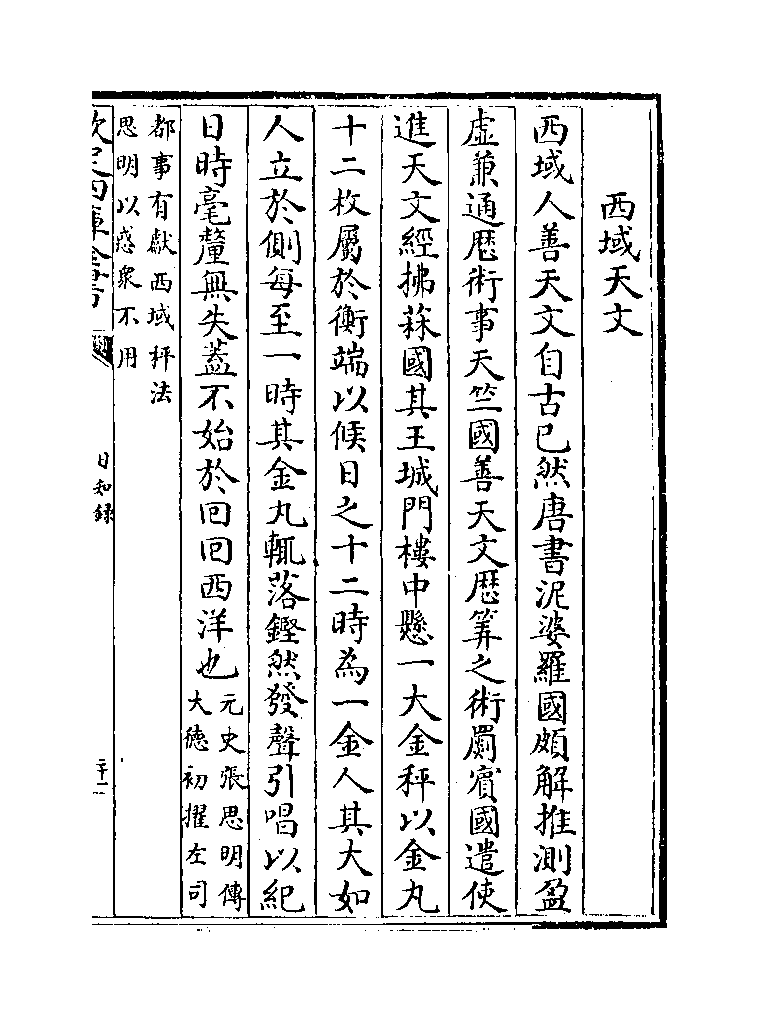 西域天文
西域人善天文自古已然唐書泥婆羅國頗解推測盈
虛兼通厯術事天竺國善天文厯筭之術罽賔國遣使
進天文經拂菻國其王城門樓中懸一大金秤以金丸
十二枚屬於衡端以候日之十二時為一金人其大如
人立於側每至一時其金丸輒落鏗然發聲引唱以紀
日時毫釐無失葢不始於囘囘西洋也元史張思明傳
大德初擢左司
都事有獻西域秤法
思明以惑衆不用
欽定四庫全書
日知録
三十二